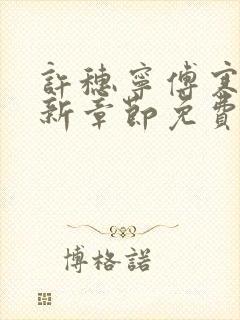 許穗寧傅寒
新章節免費
博格諾